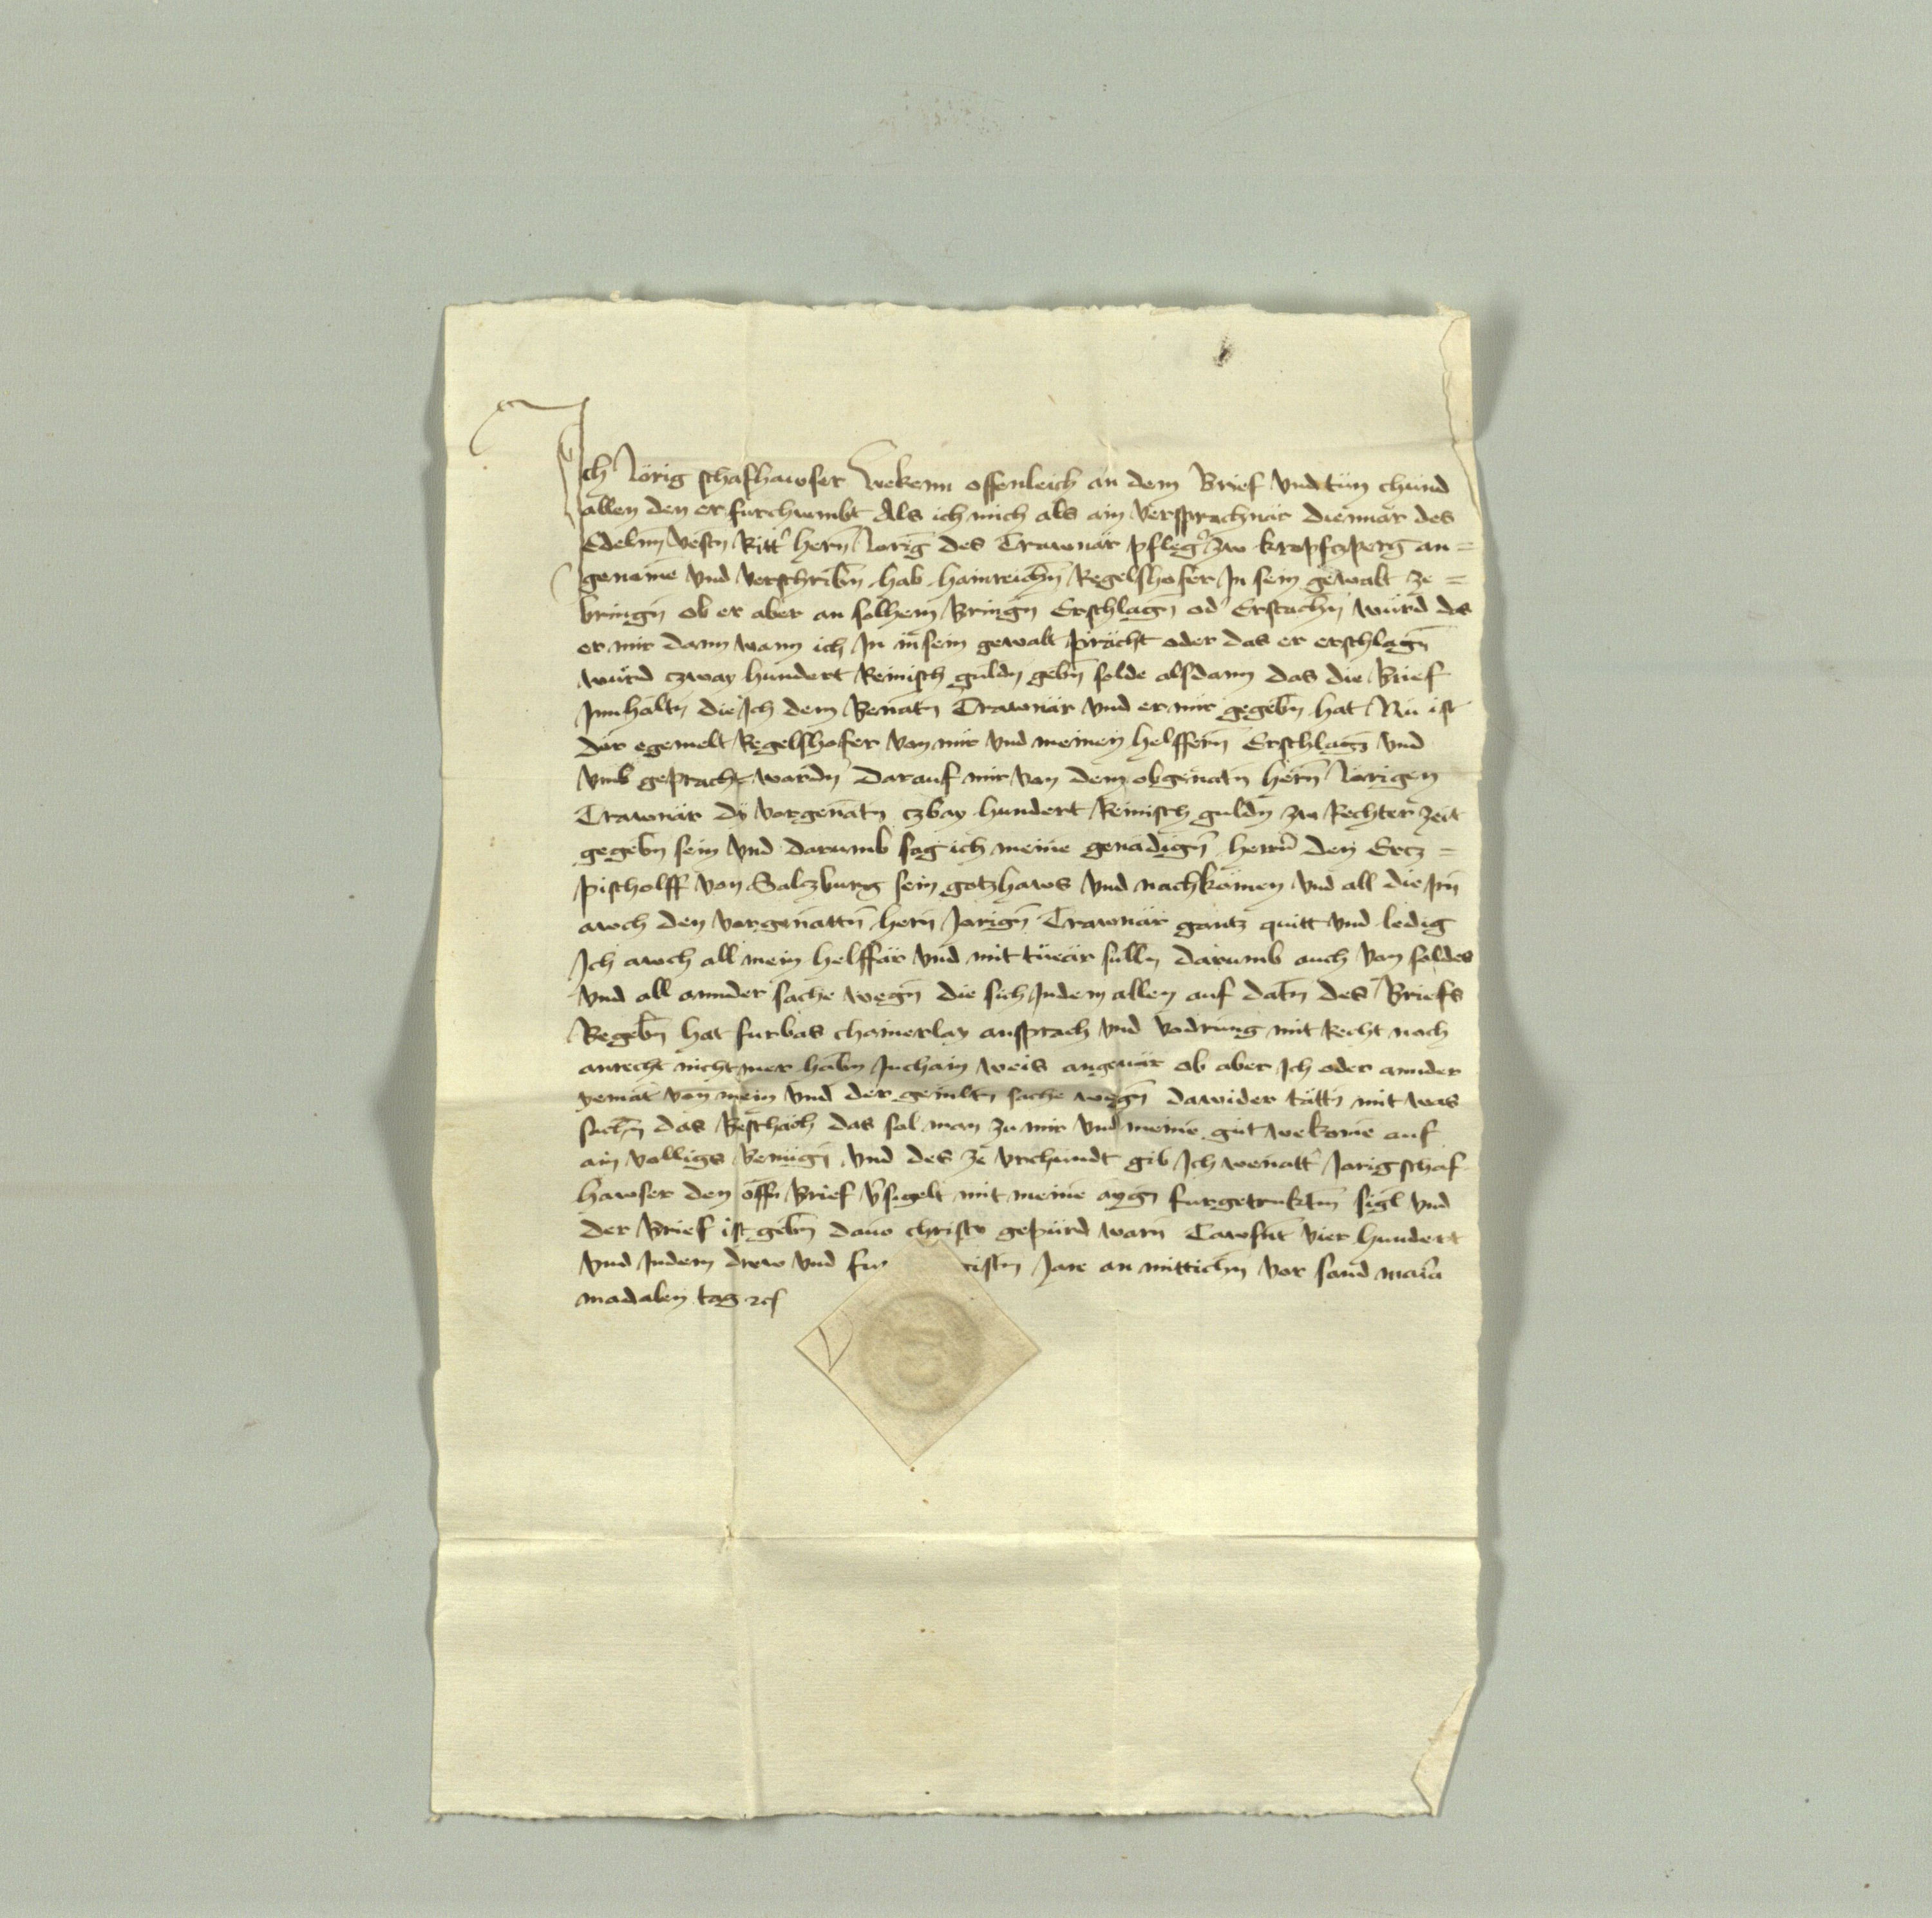 Ich Jörig schafhawser wekenn offenleich an dem Brief vnd tün chünd
allen den er furchumbt Als ich mich als ain versprachnär diennär des
Edelnn vestn Ritt' hern Jorig des Trawnär pfleg' zw kropfczperg an=
genome vnd verschribn hab hainreichn Regelshofer In sein gewalt ze=
bringn ob er aber an solhem Bringn Erschlagn od' Erstachn würd das
er mir dann wann ich In in sein gewalt prächt oder das er erschlagn
würd czway hundert Reinisch guldn gebn solde alsdann das die Brief
Innhaltn die Ich dem Benatn Trawnär vnd er mir gegebn hat Nu ist
der egemelt Regelshofer von mir vnd meinen helffern Erschlagn vnd
vmb geprach wordn darauf mir von dem obgenatn hern Jörigen
Trawnär dy vorgenatn czbay hundert Reinisch guldn zw Rechter zeit
gegebn sein vnd darumb sag ich meine genädign herrn den Ercz=
pischolff von Salczburg sein gotzhaws vnd nachkömen vnd all die Irn
awch den vorgenattn hern Jorign Trawnär gantz quitt vnd ledig
Ich awch all mein helffär vnd mit tüeär sulln darumb auch von soldes
vnd all annder sache wegn die sich In dem allen auf datn des Briefs
Begebn hat furbas chainerlay ansprach vnd vodrung mit Recht noch
anrecht nicht mer habn In chain weis angeuär ob aber Ich oder annder
yemat von mein vnd der gemltn sache wegn dawider tättn mit was
sachn das Beschäch das sol man zu mir vnd meine güt wekome auf
ain volligs Benügn vnd des ze vrchundt gib Ich wenatt' Jorig schaf
hawser den offn Brief v'sigelt mit meine aygn furgetruktm sigl vnd
der Brief ist gebn dauo christo gepürd warn Tawsnt vier hundert
vnd Indem drew vnd fu istn Jare an mittichn vor sand maria
madalen tag